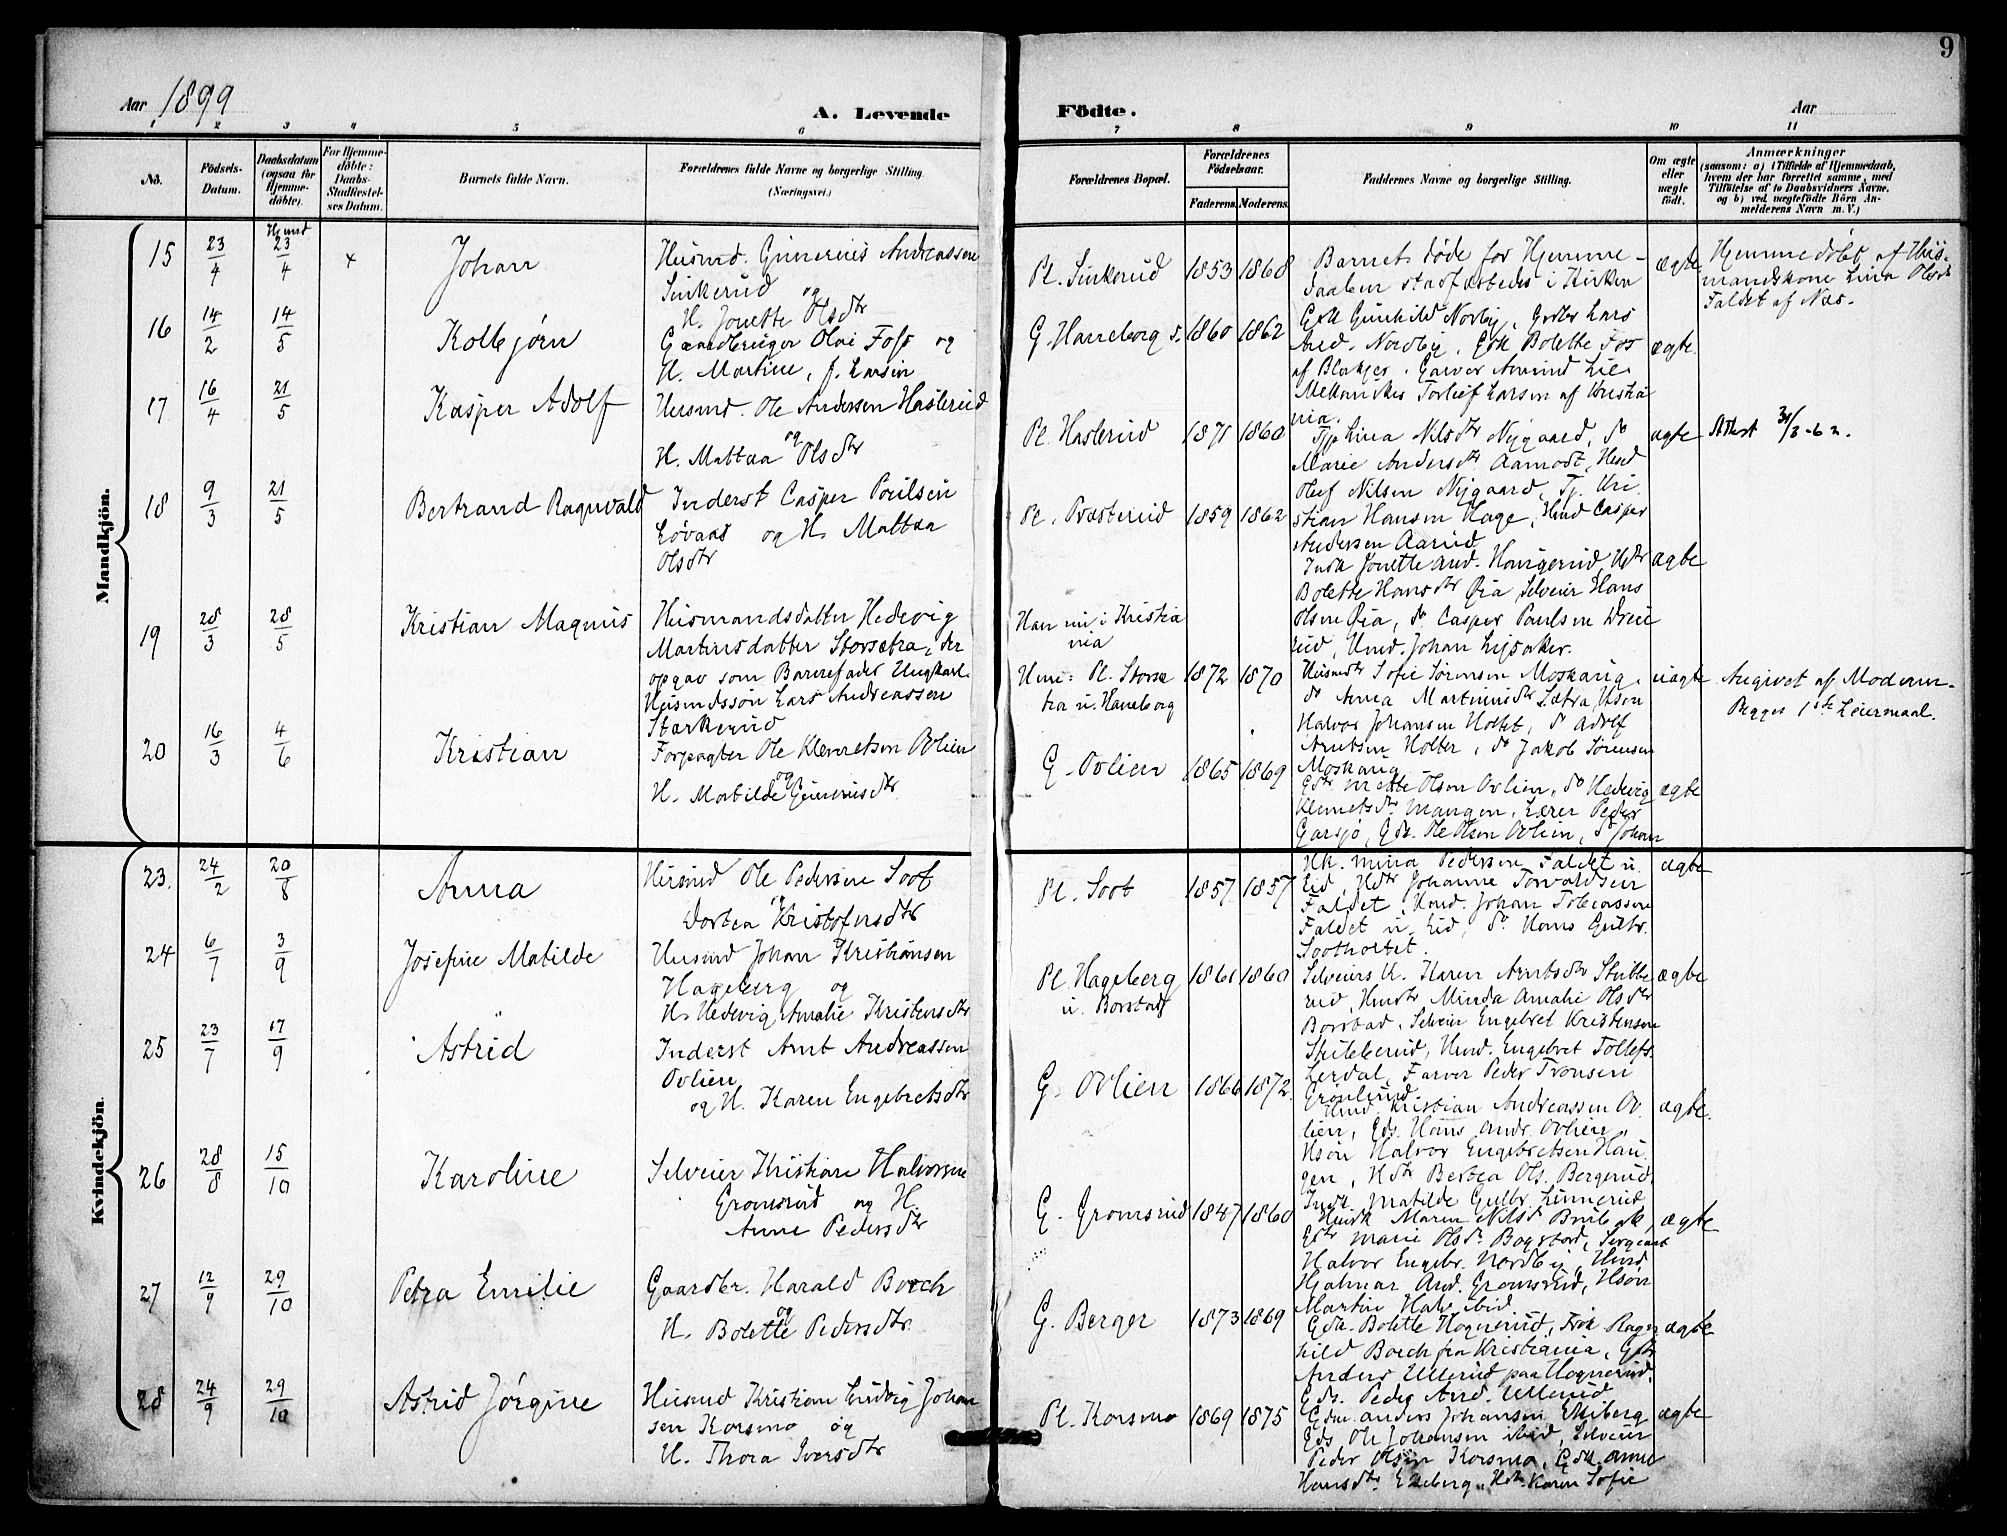 9
Aar 1899
A. Levende
Födte.
Aar
1 2 3 4 5 6 7 8 9 10 11
No.
Födsels-Datum.
Daabsdatum (ogsaa for Hjemme-döbte).
For Hjemme-döbte: Daabs-Stadfæstel-ses Datum.
Barnets fulde Navn.
Forældrenes fulde Navne og borgerlige Stilling. (Næringsvei.)
Forældrenes Bopæl.
Forældrenes Födselsaar.
Faderens. Moderens.
Faddernes Navne og borgerlige Stilling.
Om ægte eller uægte födt.
Anmærkninger
(saasom: a) i Tilfælde af Hjemmedaab, hvem der har forrettet samme, med Tilföielse af to Daabsvidners Navne, og b) ved uægtefödte Börn An-melderens Navn m. V.)
Mandkjön.
15 23/4 Hjemd 23/4 x Johan
Husmd. Gunerius Andreassen
Sinkerud og
H. Jonette Olsdtr
Pl. Sinkerud 1853 1868
Barnet døde før Hjemme-
daaben stadfæstedes i Kirken
ægte
Hjemmedøbt af Hus-
mandskone Lina Olsdtr
Faldet af Næs.
16 14/2 14/5 Kolbjørn
Gaardbruger Olai Foss og
H. Martine, f. Larsen
G. Haneborg s. 1860 1862
Gdk Gunhild Nordby, Gdbr Lars
And. Nordby, Gdk Bolette Fos
af Blakjer, Garver Amund Lie
Mekanikus Torleif Larsen af Kristia
nia.
ægte
17 16/4 21/5 Kasper Adolf
Husmd. Ole Andersen Haslerud
og
H. Mattea Olsdtr
Pl. Haslerud 1871 1860
Tjp Lina Nilsdtr Nygaard, do
Marie Andersdtr Aamodt, Hmd
Oluf Nilsen Nygaard, Tj. Kri
stian Hansen Hage, Hmd Casper
Andersen Aarud
ægte
Attest 31/3-62.
18 9/3 21/5 Bertrand Ragnvald
Inderst Casper Poulsen
Løvaas og H. Mattea
Olsdtr
Pl. Præsterud 1859 1862
Indk Jonette And. Haugerud, Hdtr
Bolette Hansdtr Øia, Selveier Hans
Olsen Øia, do Casper Paulsen
Hmd. Johan Lysaker.
ægte
19 28/3 28/5 Kristian Magnus
Husmandsdatter Hedevig
Martinsdatter Storsætra, der
opgav som Barnefader Ungkarl
Husmdssøn Lars Andreassen
Stærkerud
Han nu i Kristia
nia
Hun: Pl. Storsæ
tra u. Haneborg
1872 1870
Husmdtr Sofie Sørensen Moskaug,
do Anna Martinusdtr Sætra, Hsøn
Halvor Johansen Holtet, do Adolf
Arntsen Holter, do Jakob Sørensen
Moskaug
uægte
Angivet af Moderen.
Begges 1ste Leiermaal.
20 16/3 4/6 Kristian
Forpagter Ole Klemetsen Ovlien
og
H. Matilde Gunerusdtr
G. Ovlien 1865 1869
Gdtr Mette Olsen Ovlien, do Hedevig
Klemetsdtr Mangen, Lærer Peder
Garsjø, Gds. Ole Olsen Ovlien, do Johan
ægte
Kvindekjön.
23. 24/2 20/8 Anna
Husmd Ole Pedersen Soot
og
Dortea Kristofersdtr
Pl. Soot 1857 1857
Hk. Mina Pedersen Faldet u.
Eid, Hdtr Johanne Torvaldsen
Faldet, Hmd. Johan Tobiassen
Faldet u. Eid, do Hans Gulbr.
Sootholtet.
ægte
24 6/7 3/9 Josefine Matilde
Husmd Johan Kristiansen
Hageberg og
H. Hedevig Amalie Kristensdtr
Pl. Hageberg
u. Borstad
1861 1860
Selveiers K. Karen Arntsdtr Skitbe
rud, Hmdtr Minda Amalie Olsdtr
Borstad, Selveier Engebret Kristensen
Skitberud, Hmd. Engebret Tollefs.
Lerdal, Farver Peder Tronsen
Grønlund.
ægte
25 23/7 17/9 Astrid
Inderst Arnt Andreassen
Ovlien
og H. Karen Engebretsdtr
G. Ovlien 1866 1872.
Hmd. Kristian Andreassen Ov
lien, Gds. Hans Andr. Ovlien,
Hsøn Halvor Engebretsen Hau
gen, Hdtr Bertea Ols. Bergerud,
Indk Matilde Gulbr. Linnerud
ægte.
26 28/8 15/10 Karoline
Selveier Kristian Halvorsen
Gromsrud og H.
Anne Pedersdtr
G. Gromsrud 1847 1860
Husk Maren Nilsd Brubak,
Gdtr Marie Olsdr Bogstad, Sergeant
Halvor Engebr. Nordby, Hmd
Hjalmar And. Gromsrud, Hsøn
Martin Halv ibid
ægte
27 12/9 29/10 Petra Emilie
Gaardbr. Harald Borch
og
H. Bolette Pedersdtr
G. Berger 1873 1869
Gdk. Bolette Hognerud, Frøk Ragn
hild Borch fra Kristiania, Gdbr
Anders Ullerud paa Hognerud,
Gds. Peder And. Ullerud
ægte
28 24/9 29/10 Astrid Jørgine
Husmd Kristian Ludvig Johan
sen Korsmo og
H. Thora Iversdtr
Pl. Korsmo 1869 1875
Gdm. Anders Johansen Ekeberg
Gds Ole Johansen ibid, Selveier
Peder Olsen Korsmo, Gdk. Anne
Hansdtr Ekeberg, Hdtr Karen Sofie
ægte